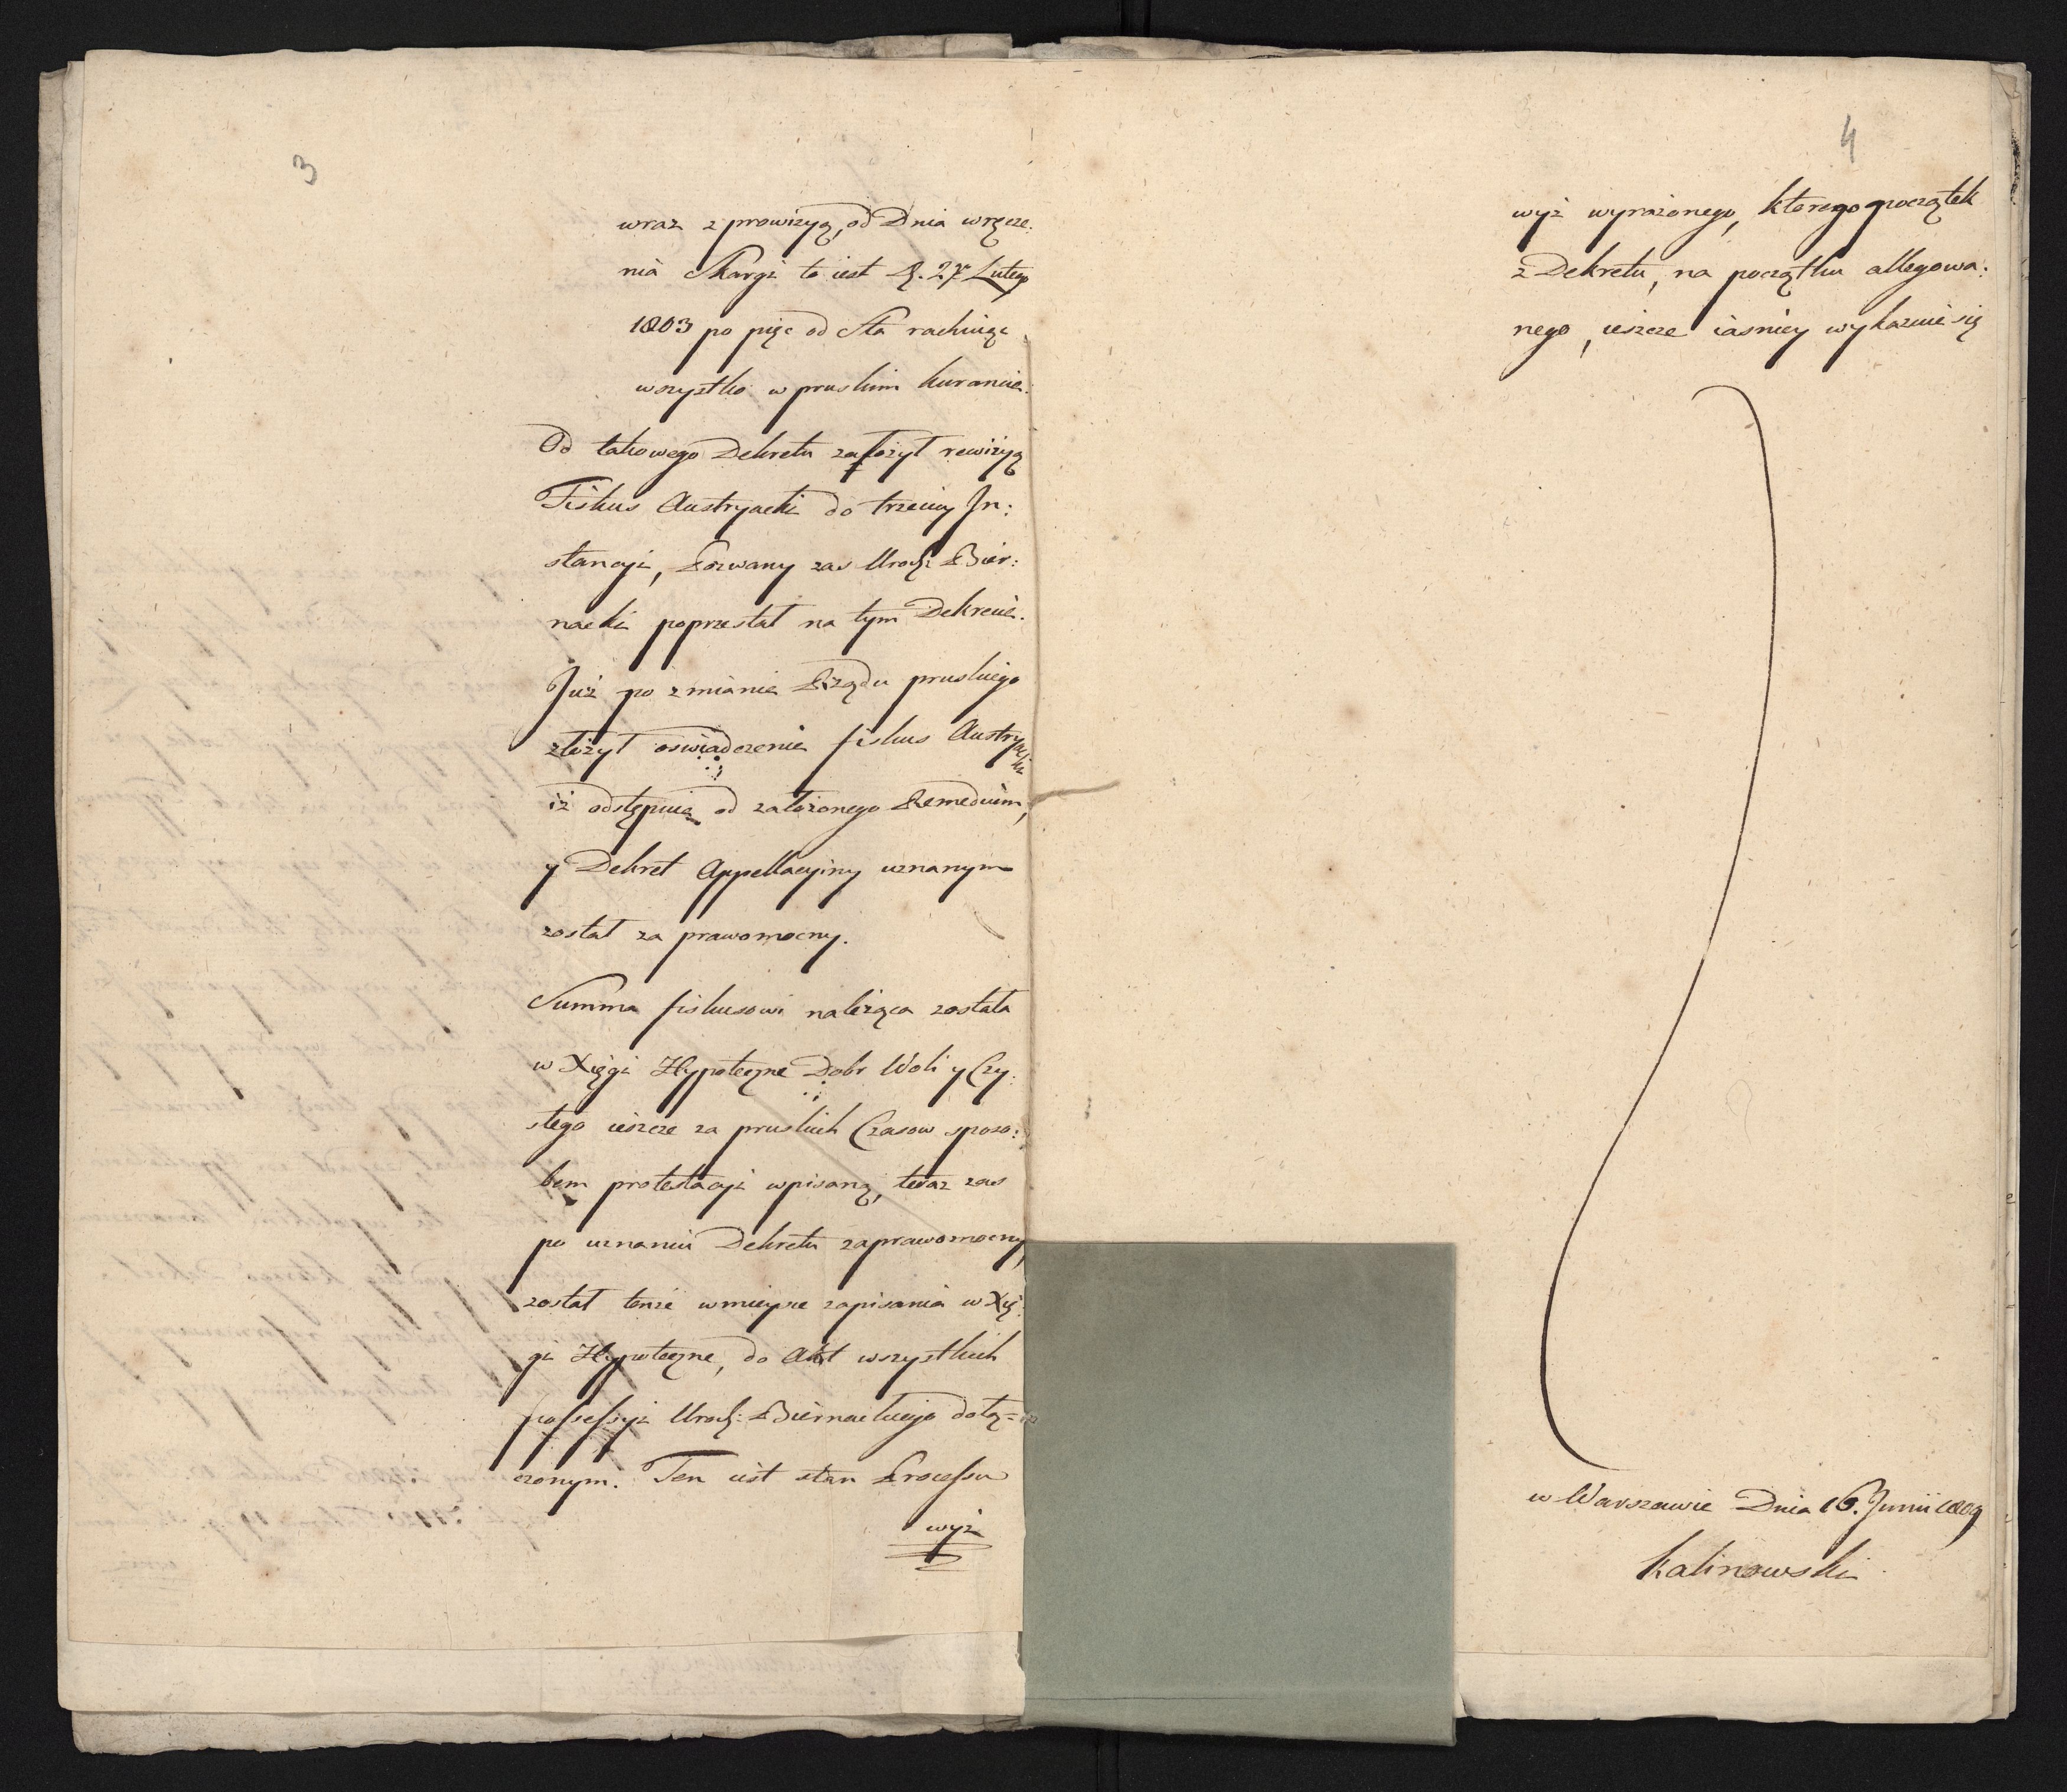 3
wraz z prowizyą, od Dnia wręcze:
nia Skargi to iest d. 27 Lutego
1803 po pięc od Sta rachuiąc
wszystko w pruskim kurancie.
Od takowego Dekretu założył rewizyą
Fiskus Austryacki do trzeciey In:
stancyi, Pozwany zas Urodz: Bier:
nacki poprzestał na tym Dekrecie.
Już po zmianie Rządu pruskiego
złożył oswiadczenie fiskus Austryacki
iż odstępuie od założonego Remedium,
y Dekret Appellacyiny uznanym
został za prawomocny.
Summa fiskusowi należąca została
w Xięgi Hypoteczne Dobr Woli y Czy:
stego ieszcze za pruskich Czasow sposo:
bem protestacyi wpisaną, teraz zas
po uznaniu Dekretu za prawomocny,
został tenże w mieysce zapisania w Xię:
gi Hypoteczne, do Akt wszystkich
possessyi Urodz: Biernackiego dołą=
czonym. Ten iest stan Processu
wyż
4
wyż wyrażonego, ktorego początek
z Dekretu, na początku allegowa:
nego, ieszcze iasniey wykazuie się
w Warszawie Dnia 16. Junii 1809
Kalinowski